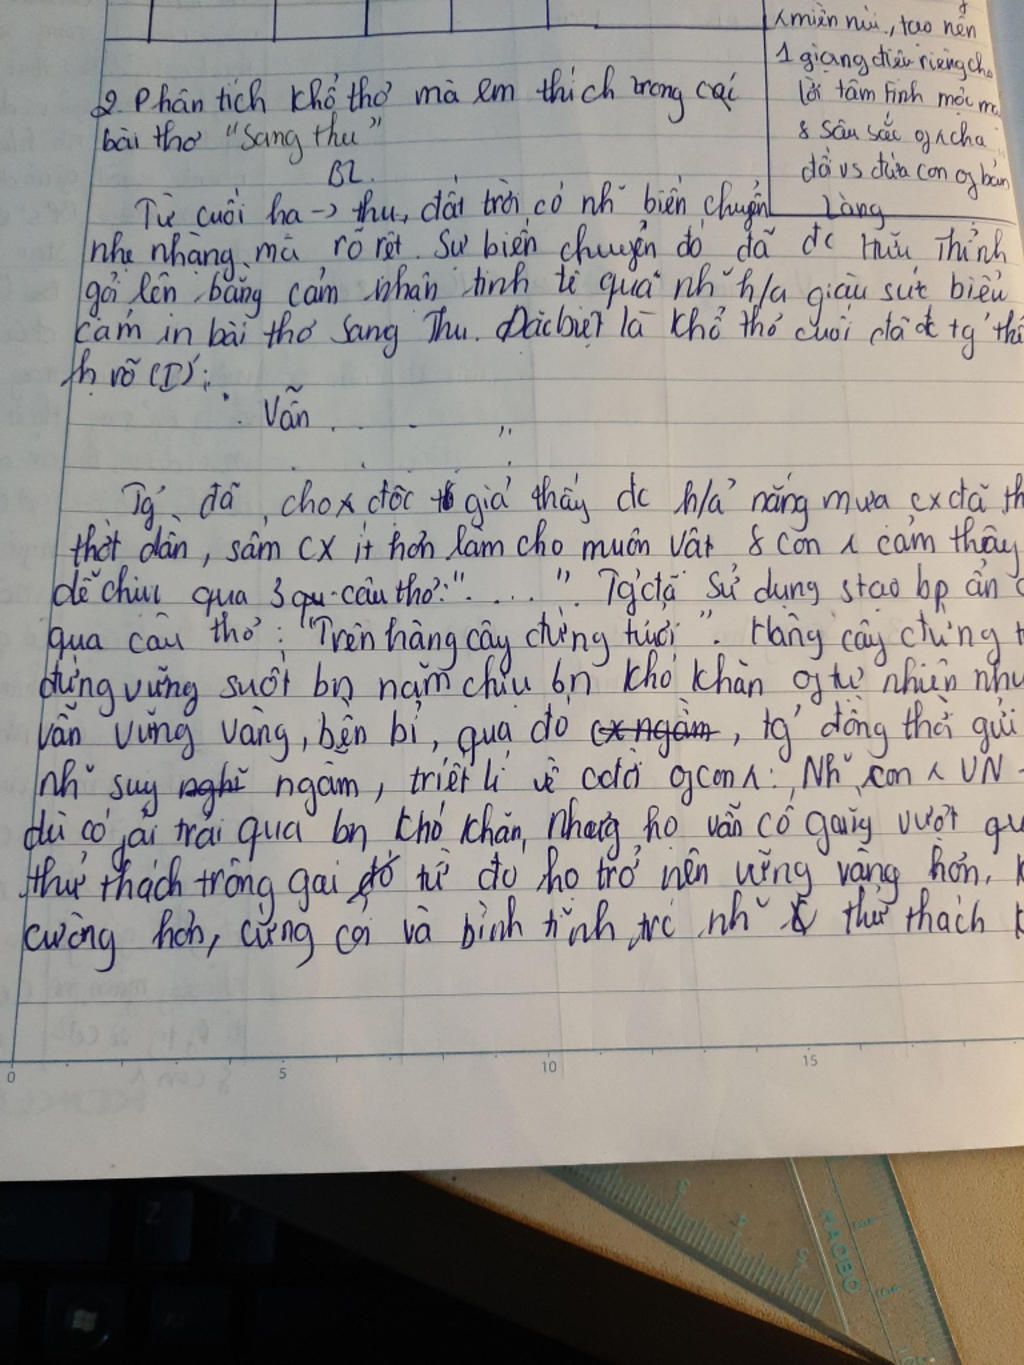 miền núi, tạo nên
1 giọng điệu riêng cho
lời tâm tình mộc mạ
& sâu sắc of cha
đồ vs đứa con of bản
làng
2. Phân tích khổ thơ mà em thích trong cại
bài thơ "Sang thu"
BL.
Từ cuối hạ -> thu, đất trời có nh~ biến chuyển
nhẹ nhàng mà rõ rệt. Sự biến chuyển đó đã đc Hữu Thỉnh
gợi lên bằng cảm nhận tinh tế qua nh~ h/a giàu sức biểu
cảm in bài thơ Sang Thu. Đặc biệt là khổ thơ cuối đã đc tg' thể
h rõ (I):
Vẫn . . . . "
Tg' đã cho đốc giả thấy đc h/ả nắng mưa cx đã th
thớt dần, sấm cx ít hơn làm cho muôn vật & con ʌ cảm thấy
dễ chịu qua 3 câu thơ: ". . . . ". Tg' đã sử dụng stạo bp ẩn d
qua câu thơ: "Trên hàng cây đứng tuổi". Hàng cây đứng t
đứng vững suốt bn năm chịu bn khó khăn of tự nhiên như
vẫn vững vàng, bền bỉ, qua đó cx ngầm, tg' đồng thời gửi
nh~ suy nghĩ ngẫm, triết lí về cđời of con ʌ: Nh~ con ʌ VN
dù có ai trải qua bn khó khăn, nhưng họ vẫn cố gắng vượt qu
thử thách trông gai đó từ đó họ trở nên vững vàng hơn, k
cường hơn, cứng cỏi và bình tĩnh trc nh~ thử thách k
0 5 10 15
Z X
HAOBO